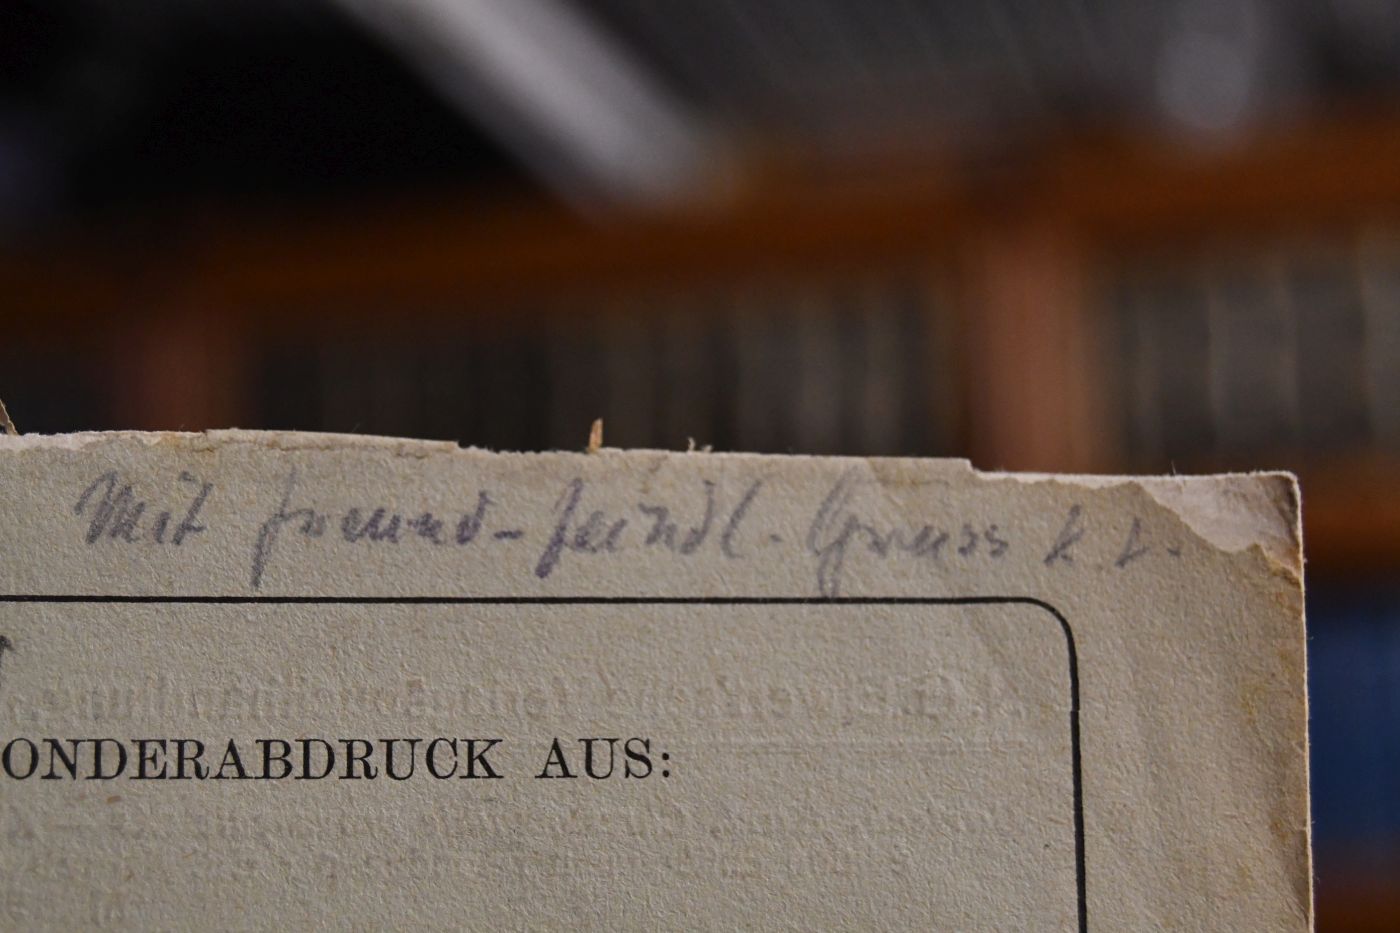 Mit freund-feindl. Gruss k. t.
ONDERABDRUCK AUS: